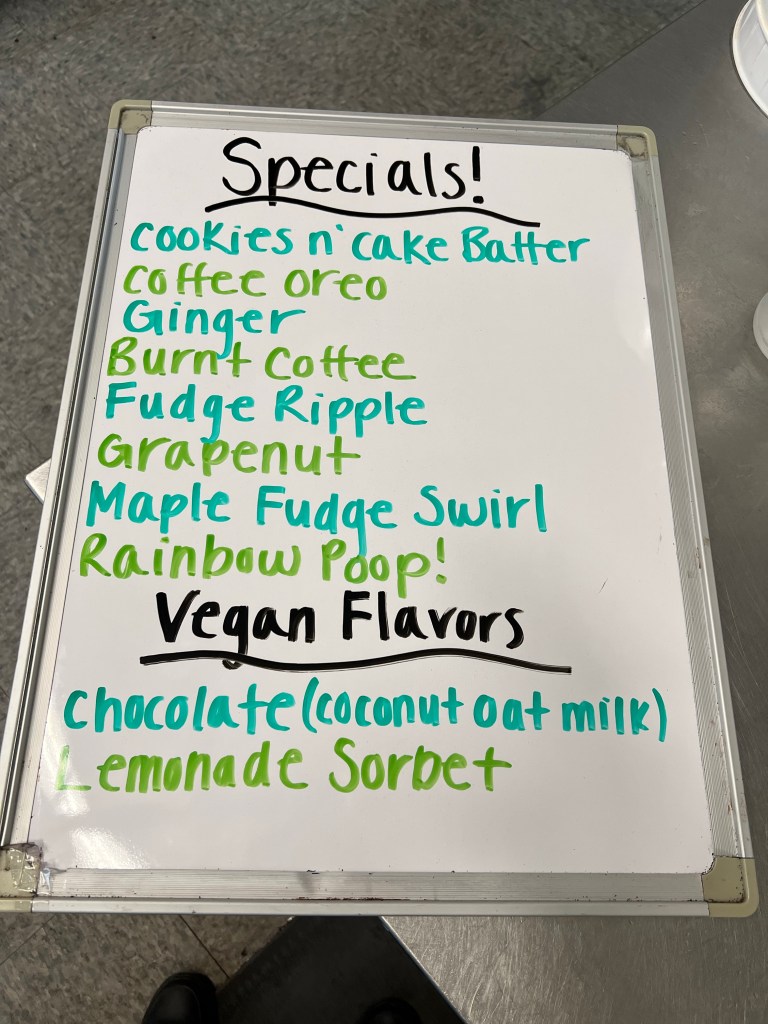 Specials!
Cookies n' Cake Batter
Coffee Oreo
Ginger
Burnt Coffee
Fudge Ripple
Grapenut
Maple Fudge Swirl
Rainbow Poop!
Vegan Flavors
Chocolate (coconut oat milk)
Lemonade Sorbet